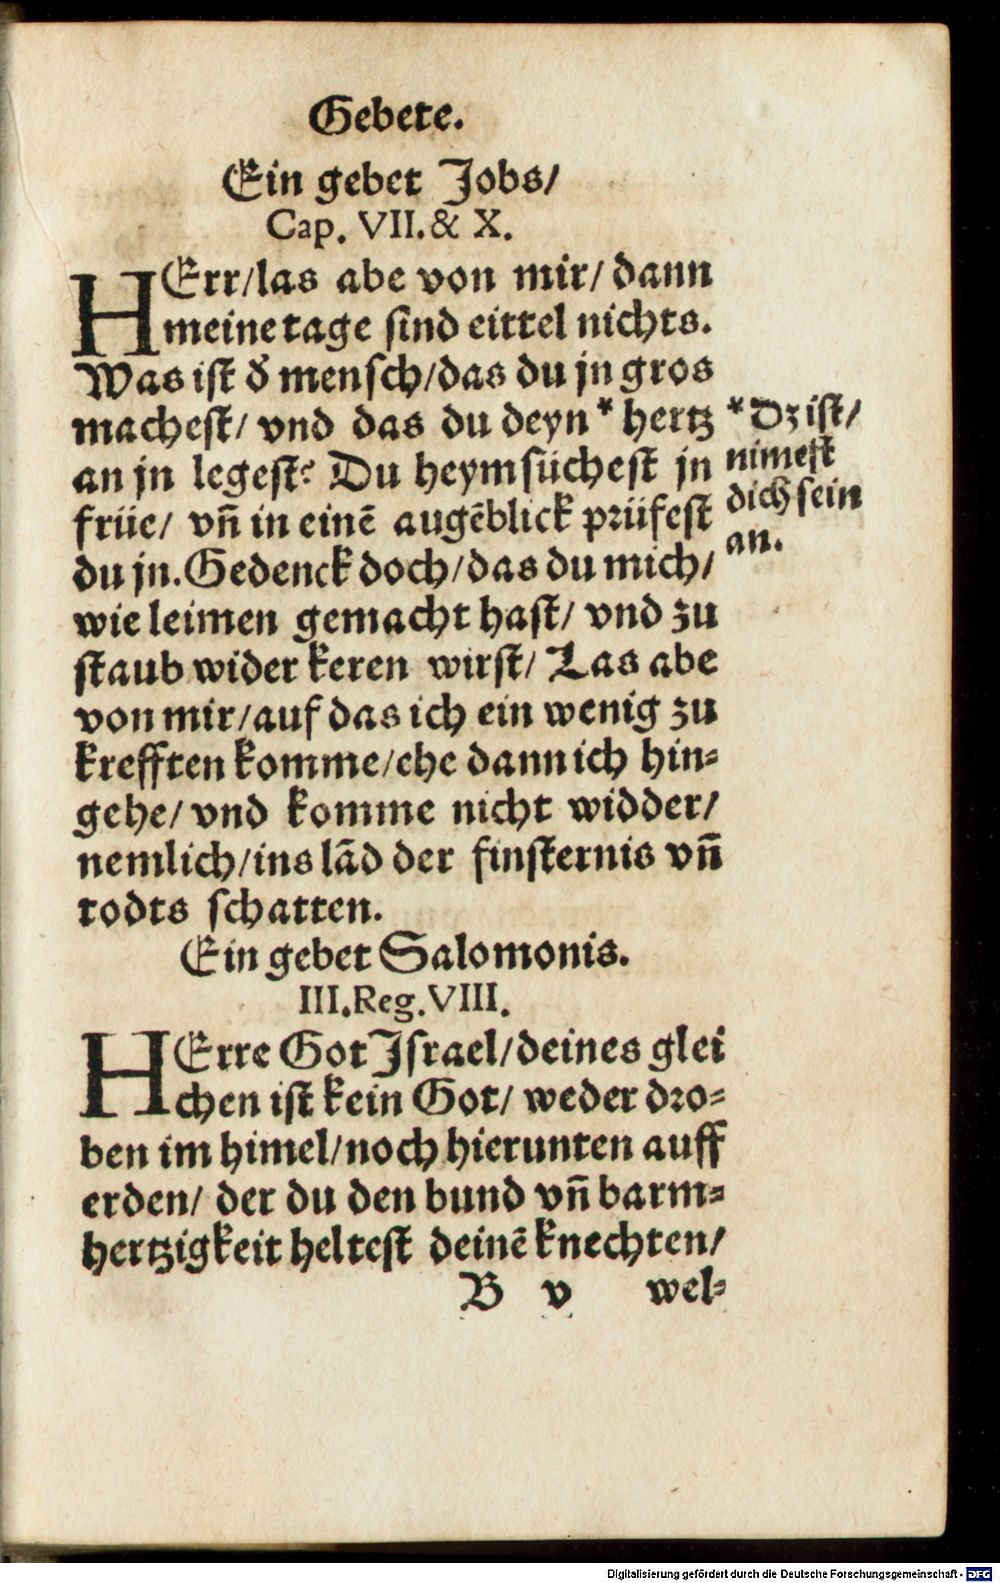 Gebete.
Ein gebet Jobs/
Cap. VII. & X.
HErr/las abe von mir/ dann
meine tage sind eittel nichts.
Was ist d̉ mensch/das du jn gros
machest/ vnd das du deyn * hertz
an jn legest? Du heymsüchest jn
früe/ vñ in einē augēblick prüfest
du jn. Gedenck doch/das du mich/
wie leimen gemacht hast/ vnd zu
staub wider keren wirst/ Las abe
von mir/auf das ich ein wenig zu
krefften komme/ehe dann ich hin=
gehe/ vnd komme nicht widder/
nemlich/ins lād der finsternis vñ
todts schatten.
* Dz ist/
nimest
dich sein
an.
Ein gebet Salomonis.
III. Reg. VIII.
HErre Got Jsrael/deines glei
chen ist kein Got/ weder dro=
ben im himel/noch hierunten auff
erden/ der du den bund vñ barm=
hertzigkeit heltest deinē knechten/
B v wel=
Digitalisierung gefördert durch die Deutsche Forschungsgemeinschaft - DFG